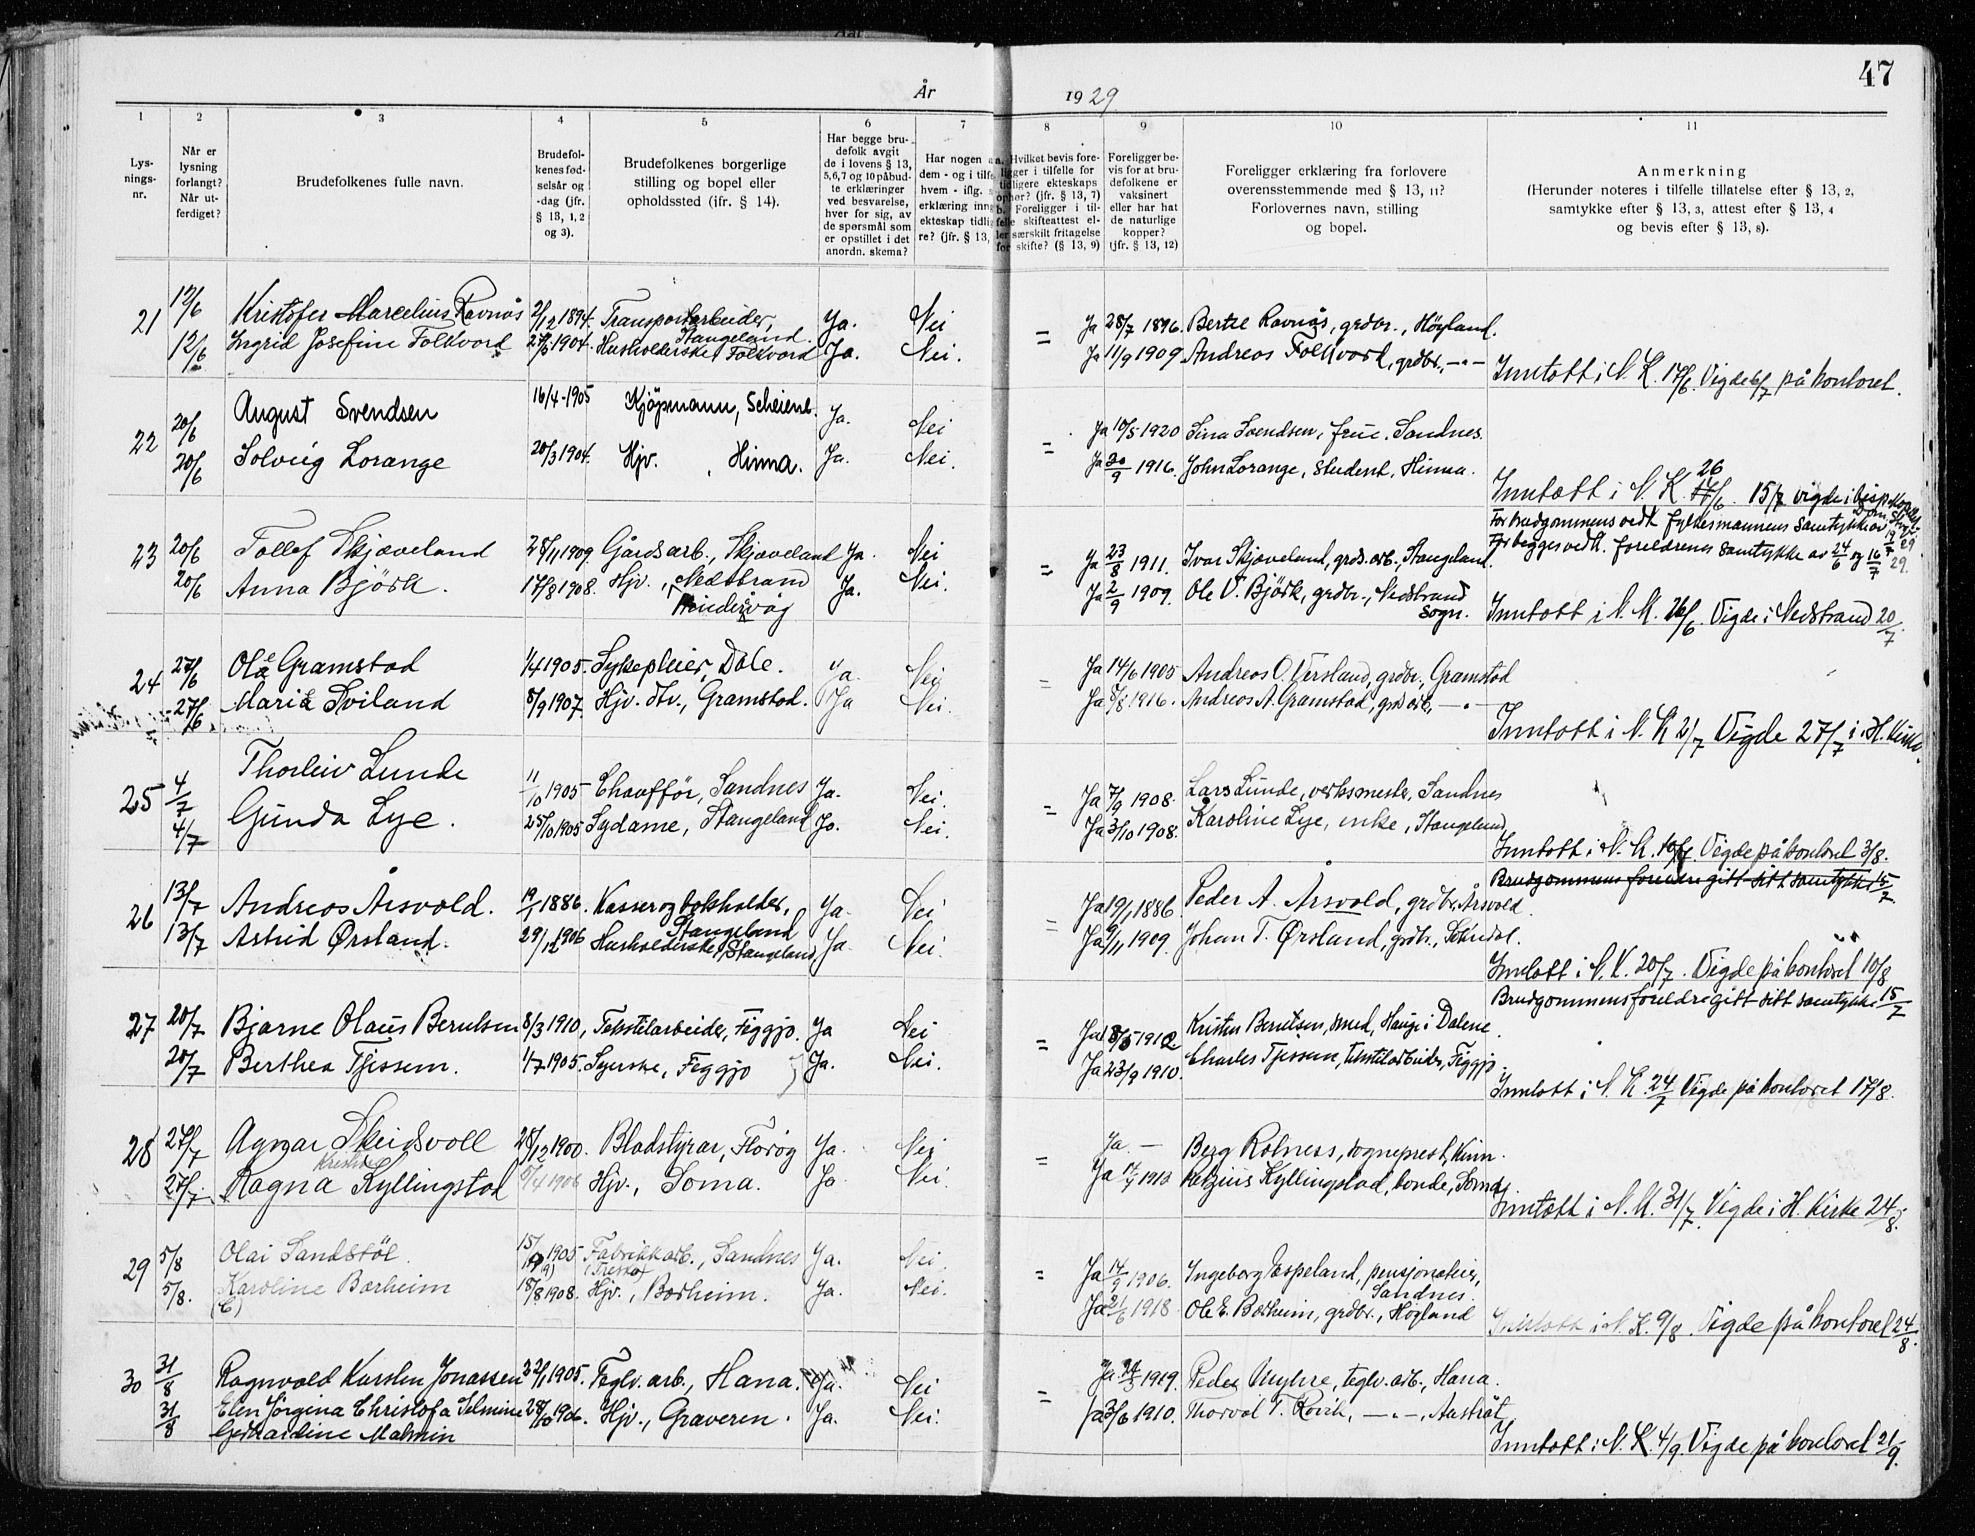 47
År 1929
1 2 3 4 5 6 7 8 9 10 11
Lys-
nings-
nr.
Når er
lysning
forlangt?
Når ut-
ferdiget?
Brudefolkenes fulle navn.
Brudefol-
kenes fød-
selsår og
-dag (jfr.
§ 13, 1, 2
og 3).
Brudefolkenes borgerlige
stilling og bopel eller
opholdssted (ifr. § 14).
Har begge bru-
defolk avgit
de i lovens § 13,
5,6,7 og 10 påbud-
te erklæringer
ved besvarelse,
hver for sig, av
de spørsmål som
er opstillet i det
anordn. skema?
Har nogen a
dem - og i tilfe
hvem - iflg. s
erklæring inng
ekteskap tidlig
re? (jfr. § 13,
a. Hvilket bevis fore-
ligger i tilfelle for
tidligere ekteskaps
ophør? (jfr. § 13, 7)
b. Foreligger i til-
felle skifteattest el-
ler særskilt fritagelse
for skifte? (§ 13, 9)
Foreligger be-
vis for at bru-
defolkene er
vaksinert
eller har hat
de naturlige
kopper?
(jfr. § 13, 12)
Foreligger erklæring fra forlovere
overensstemmende med § 13, 11?
Forlovernes navn, stilling
og bopel.
Anmerkning
(Herunder noteres i tilfelle tillatelse efter § 13, 2,
samtykke efter § 13, 3, attest efter § 13, 4
og bevis efter § 13, 8).
21 12/6 Kristofer Marcelius Ravnås 2/12 1894. Transportarbeider, Stangeland. Ja. Nei = Ja 28/7 1896. Bertel Ravnås, grdbr., Høyland.
12/6 Ingrid Josefine Folkvord 27/6 1904. Husholderske Folkvord Ja. Nei. Ja 11/9 1909 Andreas Folkvord, grdbr., —"—
Inntatt i N. K. 17/6. Vigde 6/7 på kontoret.
22 20/6 August Svendsen 16/4-1905 Kjøpmann, Scheiene. Ja. Nei = Ja 10/5 1920 Sina Svendsen, frue, Sandnes.
20/6 Solveig Lorange 20/3 1904. Hjv., Hinna. Ja. Nei. Ja 20/9 1916. John Lorange, student, Hinna.
Inntatt i N. K. 26/6. 15/7 vigde i
23 20/6 Tollef Skjæveland 28/11 1909. Gårdsarb., Skjæveland Ja. Nei = Ja 23/8 1911. Ivar Skjæveland, grds.arb., Stangeland.
For brudgommens vedk. fylkesmannens samtykke av 19/7 29
For begges vedk. foreldrenes samtykke av 24/6 og 16/7 29.
20/6 Anna Björk. 17/8 1908. Hjv., Nedstrand Ja. Nei. Ja 2/9 1909. Ole V. Björk, grdbr., Nedstrand sogn.
Hindervåg
Inntatt i N. K. 26/6. Vigde i Nedstrand 20/7.
24 27/6 Ole Gramstad 1/4 1905. Sykepleier, Dale. Ja. Nei = Ja 14/6 1905 Andreas O. Versland, grdbr., Gramstad
27/6 Marie Sviland 8/9 1907. Hjv. dtr., Gramstad. Ja Nei. Ja 8/8 1916. Andreas A. Gramstad, grd.arb., —"—
Inntatt i N. K 2/7 Vigde 27/7 i H. Kirke.
25 4/7 Thorleiv Lunde 11/10 1905 Chauffför, Sandnes Ja. Nei. = Ja 7/9 1908. Lars Lunde, verksmester, Sandnes
4/7 Gunda Lye. 25/10 1905 Sydame, Stangeland Ja. Nei. Ja 3/10 1908. Karoline Lye, enke, Stangeland,
Inntatt i N. K. 10/7. Vigde på kontoret 3/8.
Brudgommens foreldre gitt sitt samtykke 15/7
26 13/7 Andreas Årsvold. 19/1 1886. Kasser og bokholder, Stangeland Ja. Nei = Ja 19/1 1886. Peder A. Årsvold, grdbr. Årsvold.
13/7 Astrid Ørsland. 29/12 1906 Husholderske, Stangeland, Ja. Nei. Ja 9/11 1909. Johan T. Ørsland, grdbr., Sokndal.
Inntatt i N. K. 20/7. Vigde på kontoret 10/8
Brudgommens foreldre gitt sitt samtykke 15/7
27 20/7 Bjarne Olaus Berntsen 8/3 1910, Tekstilarbeider, Figgjo. Ja Nei = Ja 18/5 1912 Kristen Berntsen, smed, Hauge i Dalene.
20/7 Berthea Tjessem. 1/7 1905. Syerske, Figgjo Ja. Nei. Ja 23/9 1910. Charles Tjessem, tekstilarbeider, Figgjo.
Inntatt i N. K. 24/7 Vigde på kontoret 17/8.
28 27/7 Agnar Skeidsvoll 28/12 1900. Bladstyrar, Florøy Ja. Nei = Ja. — Berg Rolness, sogneprest, Kinn.
27/7. Ragna Kristine Kyllingstad 9/4 1906 Hjv., Soma. Ja Nei. Ja Retzius Kyllingstad, bonde, Soma.
Inntatt i N. K. 31/7. Vigde i H. Kirke 24/8.
29 5/8 Olai Sandstøl 15/9 1905 Fabrikkarb., Sandnes Ja. Nei. = Ja 14/9 1906. Ingeborg Espeland, pensjonatier, Sandnes.
(9) (Tresko)
5/8. Karoline Bærheim 18/8 1908. Hjv., Bærheim. Ja. Nei. Ja 21/6 1918 Ole E. Bærheim, grdbr., Høyland
(E)
Inntatt i N. K. 9/8. Vigde på kontoret 24/8.
30 31/8 Ragnvald Karsten Jonassen 22/1 1905. Teglv. arb., Hana. Ja. Nei = Ja 24/3 1919. Peder Myhre, teglv. arb., Hana.
31/8 Elen Jörgina Christofa Selmine 28/10 1906. Hjv., Graveren. Ja. Nei. Ja 3/6 1910. Thorval T. Rovik, —"—, Austråt,
31/8 Gerhardine Malmin
Inntatt i N. K. 4/9. Vigde på kontoret 21/9.